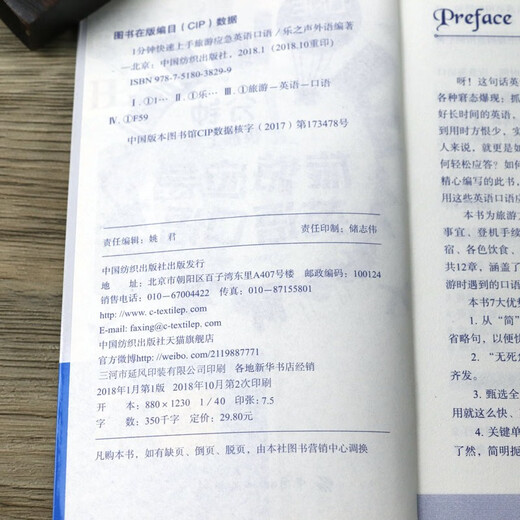 图书在版编目（CIP）数据
1分钟快速上手旅游应急英语口语／乐之声外语编著
—北京：中国纺织出版社，2018.1（2018.10重印）
ISBN 978-7-5180-3829-9
Ⅰ.①1… Ⅱ.①乐… Ⅲ.①旅游—英语—口语
Ⅳ.①F59
中国版本图书馆CIP数据核字（2017）第173478号
责任编辑：姚 君 责任印制：储志伟
中国纺织出版社出版发行
地 址：北京市朝阳区百子湾东里A407号楼 邮政编码：100124
销售电话：010—67004422 传真：010—87155801
http://www.c-textilep.com
E-mail: faxing@c-textilep.com
中国纺织出版社天猫旗舰店
官方微博http://weibo.com/2119887771
三河市延风印装有限公司印刷 各地新华书店经销
2018年1月第1版 2018年10月第2次印刷
开 本：880×1230 1/40 印张：7.5
字 数：350千字 定价：29.80元
凡购本书，如有缺页、倒页、脱页，由本社图书营销中心调换
Preface
呀！这句话英
各种窘态爆现：抓
好长时间的英语，
到用时方恨少，实
人来说，就更是如
何轻松应答？如何
精心编写的此书，
用这些英语口语应
本书为旅游
事宜、登机手续
宿、各色饮食、
共12章，涵盖了
游时遇到的口语
本书7大优
1. 从“简”
省略句，以便
2. “无死
齐发。
3. 甄选全
用就这么快、
4. 关键单
了然，简明扼